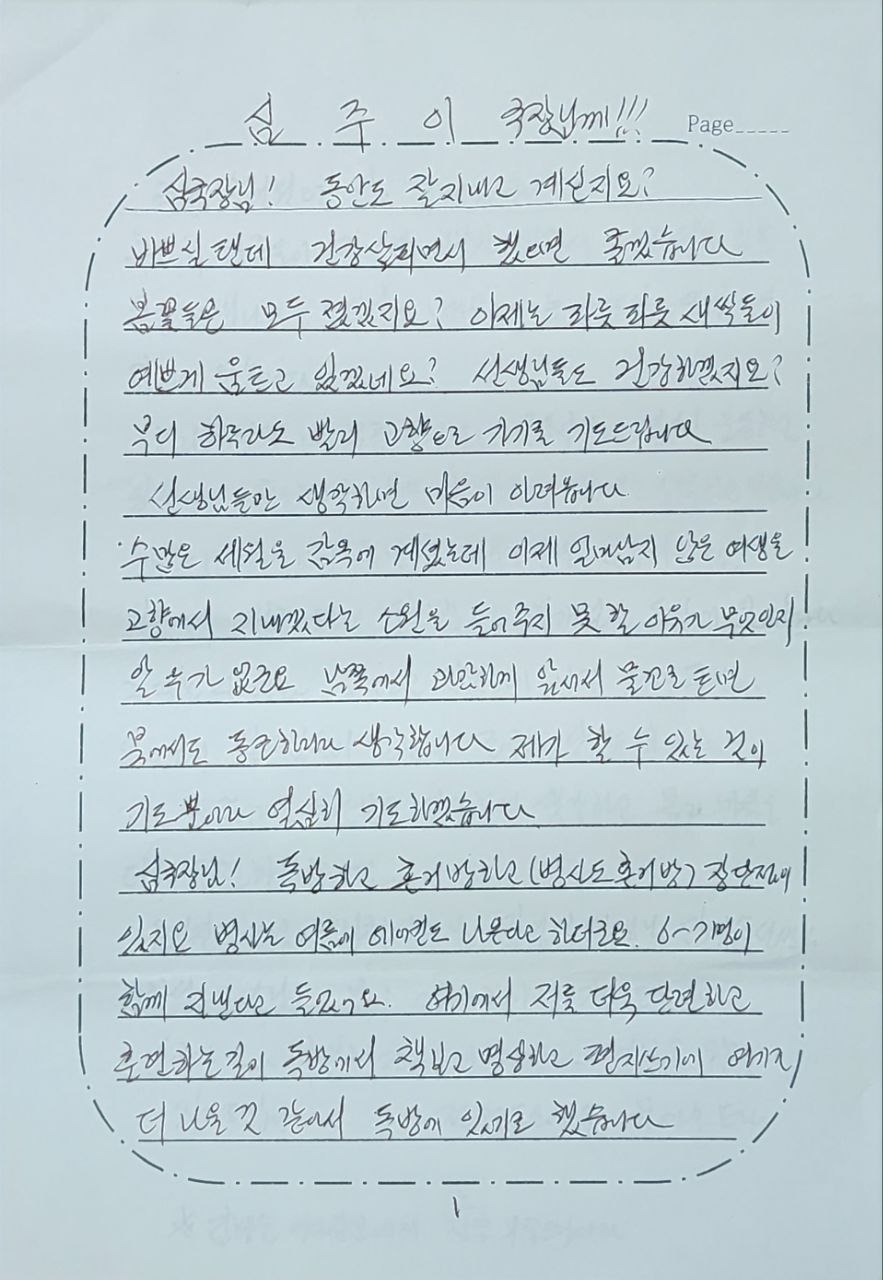 심 주 이 국장님께!!!
Page_____
심국장님! 동안도 잘지내고 계신지요?
바쁘실텐데 건강살피면서 했으면 좋겠습니다
봄꽃들은 모두 졌겠지요? 이제는 파릇파릇 새싹들이
예쁘게 움트고 있겠네요? 선생님들도 건강하겠지요?
부디 하루라도 빨리 고향으로 가기를 기도드립니다
선생님들만 생각하면 마음이 아려옵니다
수많은 세월을 감옥에 계셨는데 이제 얼마남지 않은 여생을
고향에서 지내겠다는 소원을 들어주지 못할 이유가 무엇인지
알 수가 없군요 남쪽에서 과감하게 앞서서 물꼬를 트면
북에서도 동조하리라 생각합니다 제가 할 수 있는 것이
기도뿐이라 열심히 기도하겠습니다
심국장님! 독방하고 혼거방하고(병사도혼거방) 장단점이
있지요 병사는 여름에 에어컨도 나온다고 하더군요. 6~7명이
함께 지낸다고 들었어요. 여기에서 저를 더욱 단련하고
수련하는길이 독방에서 책보고 명상하고 편지쓰기에 여기가
더 나을 것 같아서 독방에 있기로 했습니다
1